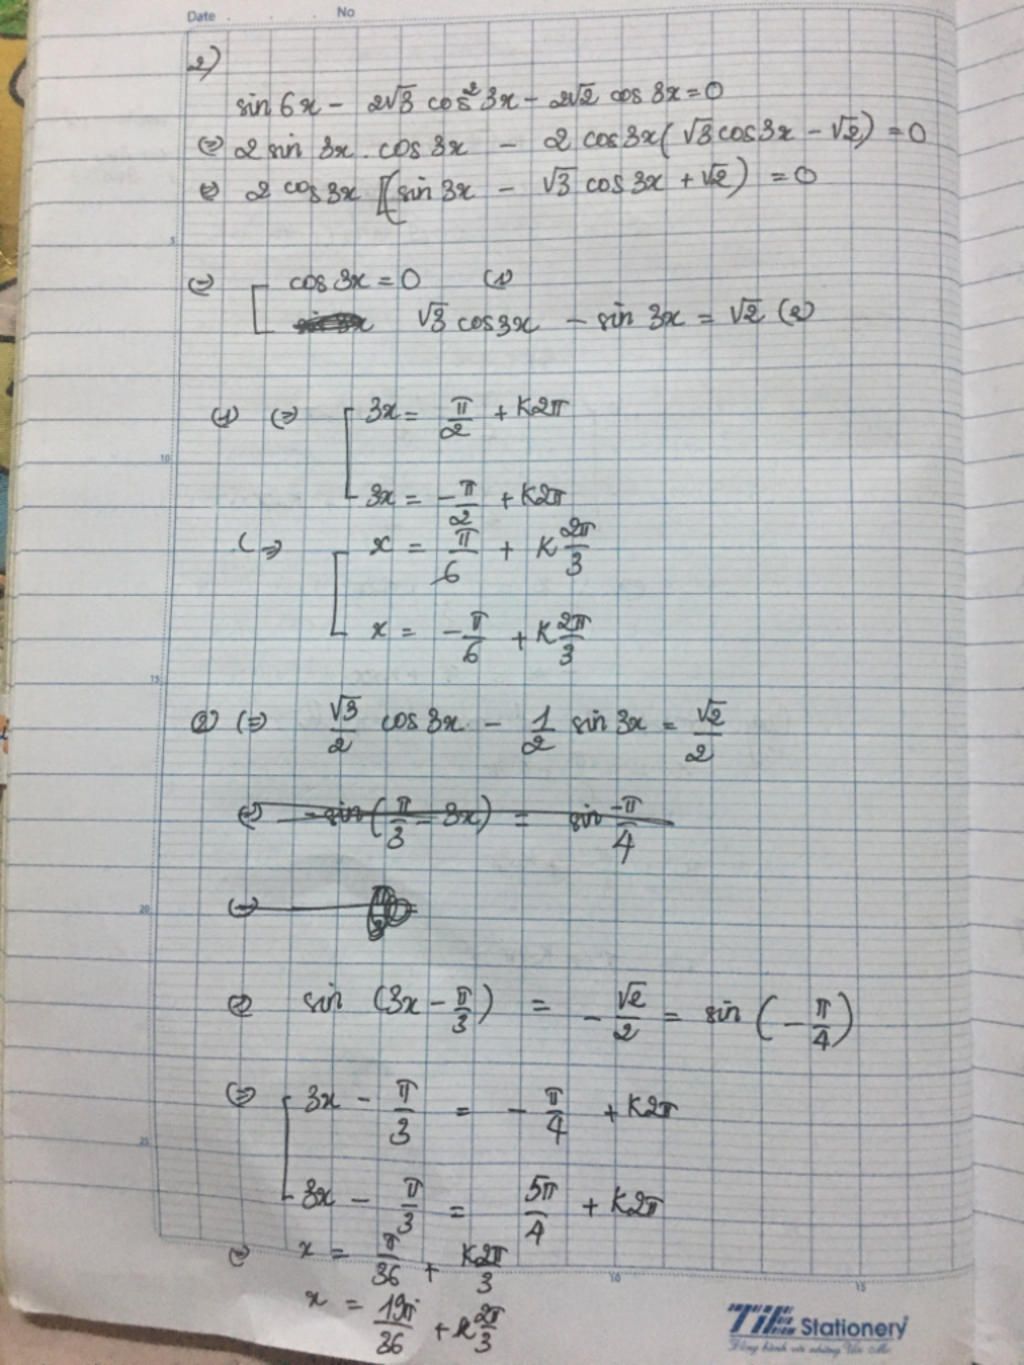 Date No
2)
sin 6x - 2√3 cos² 3x - 2√2 cos 3x = 0
(=) 2 sin 3x . cos 3x - 2 cos 3x (√3 cos 3x - √2) = 0
(=) 2 cos 3x [(sin 3x - √3 cos 3x + √2) = 0
5
(=) [ cos 3x = 0 (1)
√3 cos 3x - sin 3x = √2 (2)
(1) (=) [ 3x = π/2 + K2π
10
3x = -π/2 + K2π
(=) [ x = π/6 + K 2π/3
x = -π/6 + K 2π/3
15
(2) (=) √3/2 cos 3x - 1/2 sin 3x = √2/2
(=) -sin (π/3 - 3x) = sin -π/4
20
(=)
(=) sin (3x - π/3) = -√2/2 = sin (-π/4)
(=) [ 3x - π/3 = -π/4 + K2π
25
3x - π/3 = 5π/4 + K2π
(=) x = π/36 + K2π/3
10 15
x = 19π/36 + K 2π/3
TiE Stationery
Đồng hành với những Ước Mơ